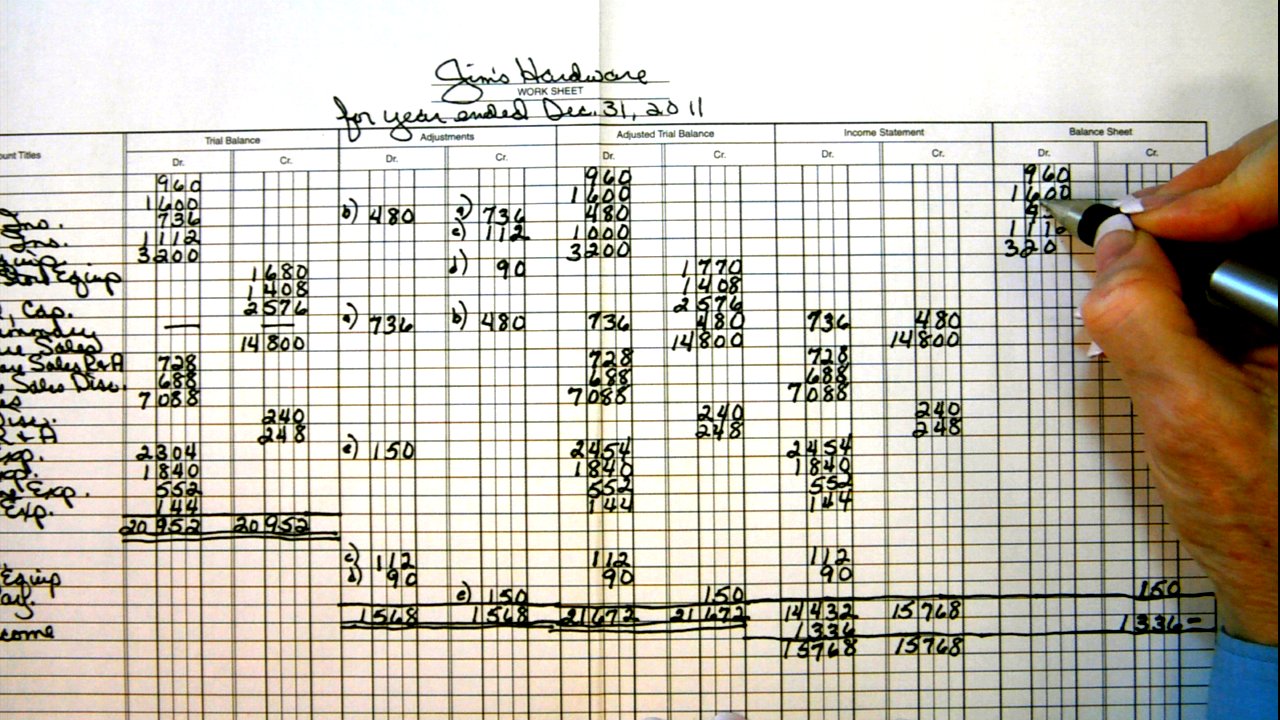 Jim's Hardware
WORK SHEET
for year ended Dec. 31, 2011
Trial Balance Adjustments Adjusted Trial Balance Income Statement Balance Sheet
Titles Dr. Cr. Dr. Cr. Dr. Cr. Dr. Cr. Dr. Cr.
960 960 960
1600 1600 1600
Ins. 736 b) 480 a) 736 480
Ins. 1112 c) 112 1000 1112
3200 3200 320
Equip 1680 d) 90 1770
1408 1408
Cap. 2576 2576
— — a) 736 b) 480 736 480 736 480
Sales 14800 14800 14800
Sales R&A 728 728 728
Sales Disc. 688 688 688
7088 7088 7088
240 240 240
& A 248 248 248
2304 e) 150 2454 2454
1840 1840 1840
Exp. 552 552 552
Exp. 144 144 144
20952 20952
c) 112 112 112
Equip d) 90 90 90
e) 150 150 150
1568 1568 21672 21672 14432 15768
1336 1336-
15768 15768